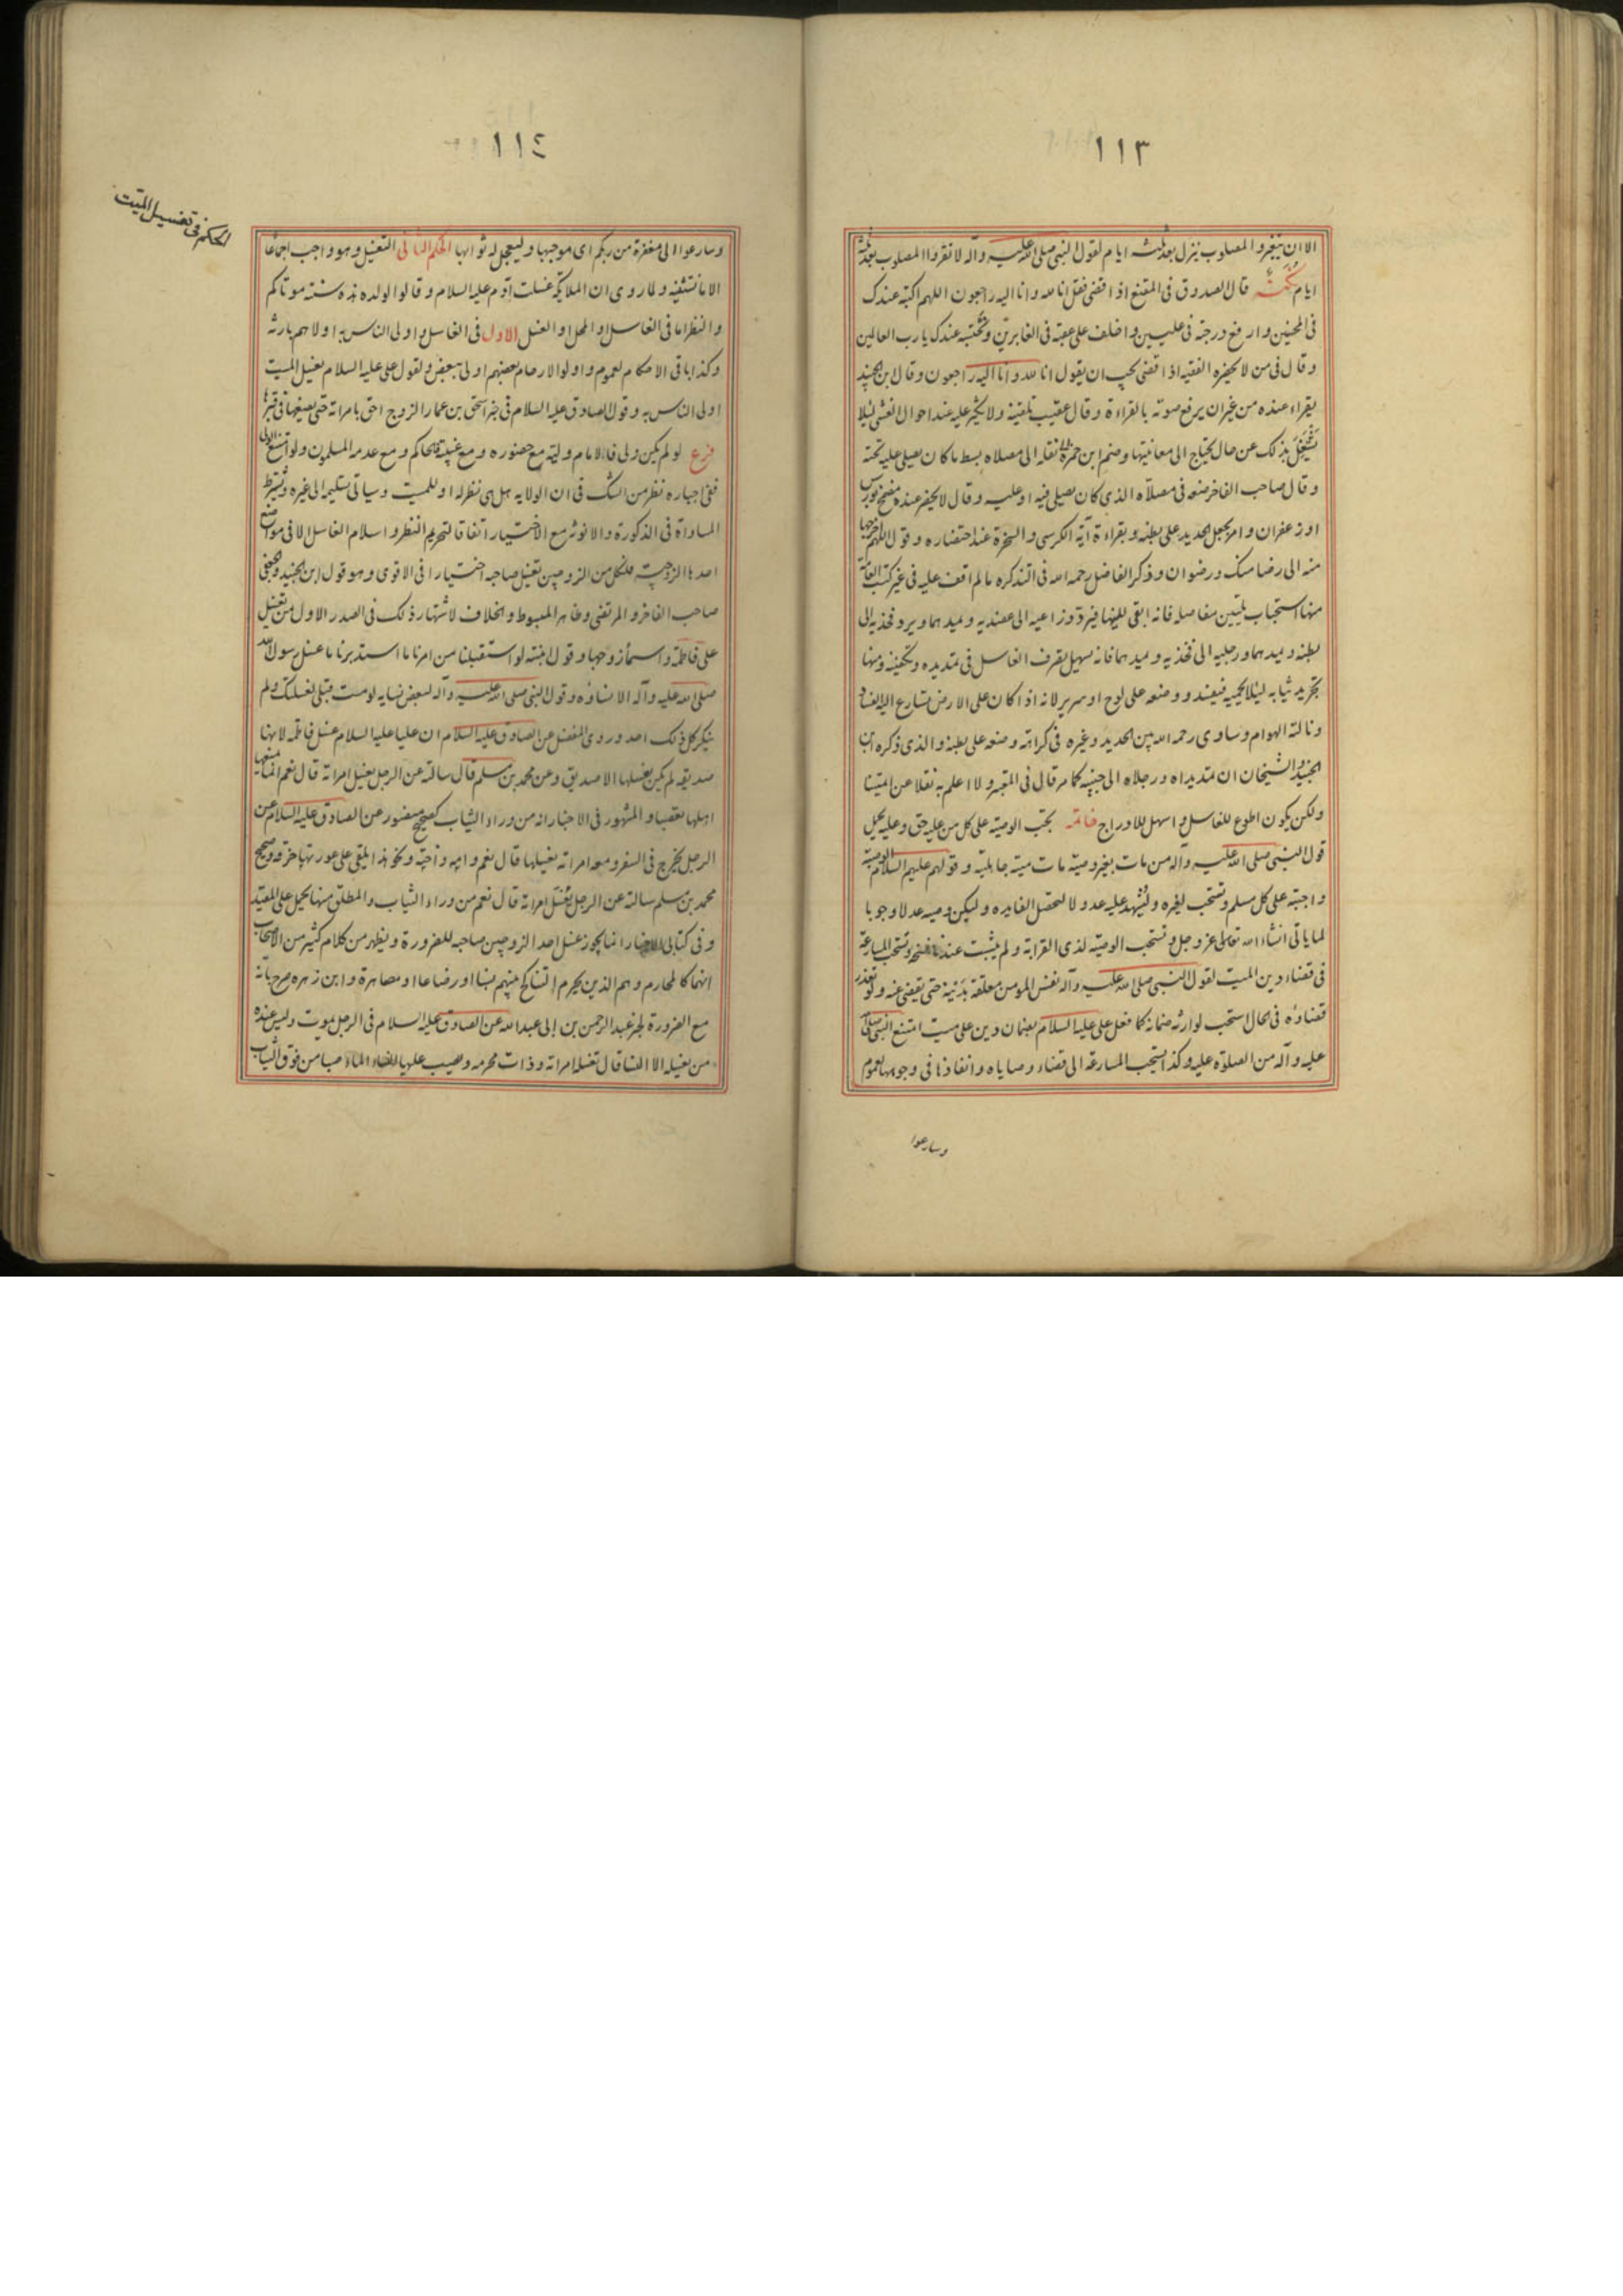 ١١٣
الا ان يتغير والمصلوب ينزل بعد ثلثة ايام لقول النبي صلى الله عليه وآله لا تقروا المصلوب بعد ثلثة
ايام تتمة قال الصدوق في المقنع اذا قضى فقل انا لله وانا اليه راجعون اللهم اكتبه عندك
في المحسنين وارفع درجته في عليين واخلف على عقبه في الغابرين ونحتسبه عندك يا رب العالمين
وقال في من لا يحضره الفقيه اذا قضى يجب ان يقول انا لله وانا اليه راجعون وقال ابن الجنيد
يقراء عنده من غير ان يرفع صوته بالقراءة وقال عقيب تلقينه ولا يكثر عليه عند احوال الغشى لئلا
يشتغل بذلك عن حال يحتاج الى معاينتها وضم ابن حمزة الى نقله الى مصلاه بسط ما كان يصلى عليه تحته
وقال صاحب الفاخر ضعه في مصلاه الذى كان يصلى فيه او عليه وقال لا يحضر عنده مضمخ بورس
او زعفران وامر بجعل الحديد على بطنه وبقراءة آية الكرسى والسخرة عند احتضاره وقول اللهم اخرجها
منه الى رضا منك ورضوان وذكر الفاضل رحمه الله في التذكره ما لم اقف عليه في غير كتب العامة
منها استحباب تليين مفاصله فانه ابقى للينها فيرد ذراعيه الى عضديه ويمدهما ويرد فخذيه الى
بطنه ويمدهما ورجليه الى فخذيه ويمدهما فانه يسهل تصرف الغاسل في تمديده وتكفينه ومنها
تجريد ثيابه لئلا يحميه فيفسد ووضعه على لوح او سرير لانه اذا كان على الارض تسارع اليه الفساد
ونالته الهوام وساوى رحمه الله بين الحديد وغيره في كراهة وضعه على بطنه والذى ذكره ابن
الجنيد والشيخان ان تمد يداه ورجلاه الى جنبيه كما مر قال في المعتبر ولا اعلم به نقلا عن ائمتنا
ولكن يكون اطوع للغاسل واسهل للادراج خاتمه يجب الوصية على كل من عليه حق وعليه يحمل
قول النبي صلى الله عليه وآله من مات بغير وصية مات ميتة جاهلية وقولهم عليهم السلام الوصية
واجبة على كل مسلم وتستحب لغيره وليشهد عليه عدولا لتحصل الفايده وليكن وصيه عدلا وجوبا
لما ياتى انشاء الله تعالى عز وجل وتستحب الوصية لذى القرابة ولم يثبت عندنا نسخه وتستحب المسارعة
في قضاء دين الميت لقول النبي صلى الله عليه وآله نفس المومن معلقة بدينه حتى يقضى عنه ولو تعذر
قضاؤه في الحال استحب لوارثه ضمانه كما فعل على عليه السلام بضمان دين على ميت امتنع النبي صلى الله
عليه وآله من الصلوة عليه وكذا يستحب المسارعة الى قضاء وصاياه وانفاذها في وجوهها لعموم
وسارعوا
١١٤
الحكم في تغسيل الميت
وسارعوا الى مغفرة من ربكم اى موجبها وليعجل له ثوابها الحكم الثانى التغسيل وهو واجب اجماعا
الا ما نستثنيه ولما روى ان الملائكة غسلت آدم عليه السلام وقالوا لولده هذه سنة موتاكم
والنظر اما في الغاسل او المحل او الغسل الاول في الغاسل واولى الناس به اولاهم بارثه
وكذا باقى الاحكام لعموم واولوا الارحام بعضهم اولى ببعض ولقول على عليه السلام يغسل الميت
اولى الناس به وقول الصادق عليه السلام في خبر اسحق بن عمار الزوج احق بامراته حتى يضعها في قبرها
فرع لو لم يكن ولى فالامام وليه مع حضوره ومع غيبته فالحاكم ومع عدمه المسلمون ولو امتنع الولى
ففى اجباره نظر من الشك في ان الولاية هل هى نظر له او للميت وسياتى تسليمه الى غيره ويشترط
المساواة في الذكورة والانوثة مع الاختيار اتفاقا لتحريم النظر واسلام الغاسل الا في مواضع
احدها الزوجية فلكل من الزوجين تغسيل صاحبه اختيارا في الاقوى وهو قول ابن الجنيد والجعفى
صاحب الفاخر والمرتضى وظاهر المبسوط والخلاف لاشتهار ذلك في الصدر الاول من تغسيل
على فاطمة واسماء زوجها وقول عايشة لو استقبلنا من امرنا ما استدبرنا ما غسل رسول الله
صلى الله عليه وآله الا نساؤه وقول النبي صلى الله عليه وآله لبعض نسايه لو مت قبلى لغسلتك ولم
ينكر كل ذلك احد وروى المفضل عن الصادق عليه السلام ان عليا عليه السلام غسل فاطمة لانها
صديقه لم يكن يغسلها الا صديق وعن محمد بن مسلم قال سالته عن الرجل يغسل امراته قال نعم انما يمنعها
اهلها تعصبا والمشهور في الاخبار انه من وراء الثياب كصحيح منصور عن الصادق عليه السلام عن
الرجل يخرج في السفر ومعه امراته يغسلها قال نعم وامه واخته ونحو هذا يلقى على عورتها خرقة وصحيح
محمد بن مسلم سالته عن الرجل يغسل امراته قال نعم من وراء الثياب والمطلق منها يحمل على المقيد
وفى كتابى الاخبار انما يجوز غسل احد الزوجين صاحبه للضرورة ويظهر من كلام كثير من الاصحاب
انهما كالمحارم وهم الذين يحرم التناكح بينهم نسبا او رضاعا او مصاهرة وابن زهره صرح بانه
مع الضرورة لخبر عبد الرحمن بن ابى عبد الله عن الصادق عليه السلام في الرجل يموت وليس عنده
من يغسله الا النسا قال تغسله امراته وذات محرمه وتصب عليها النساء الماء صبا من فوق الثياب